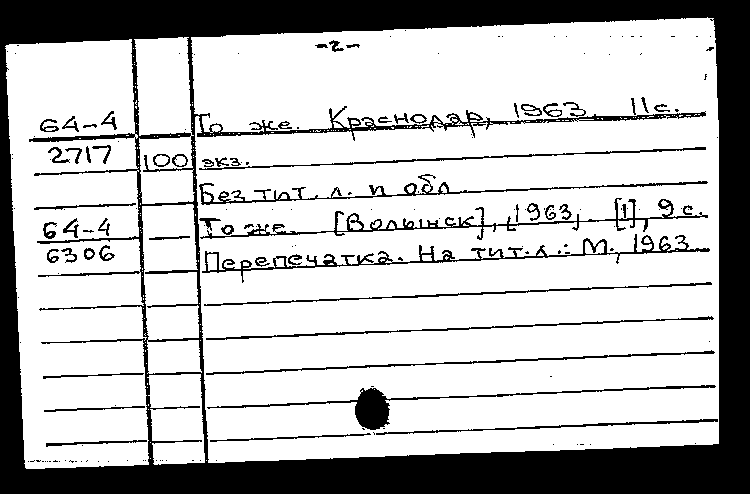 -2-
64-4 То же. Краснодар, 1963. 11с.
2717 100 экз.
Без тит. л. и обл.
64-4 То же. [Волынск], [1963]. [1], 9 с.
6306 Перепечатка. На тит. л.: М., 1963